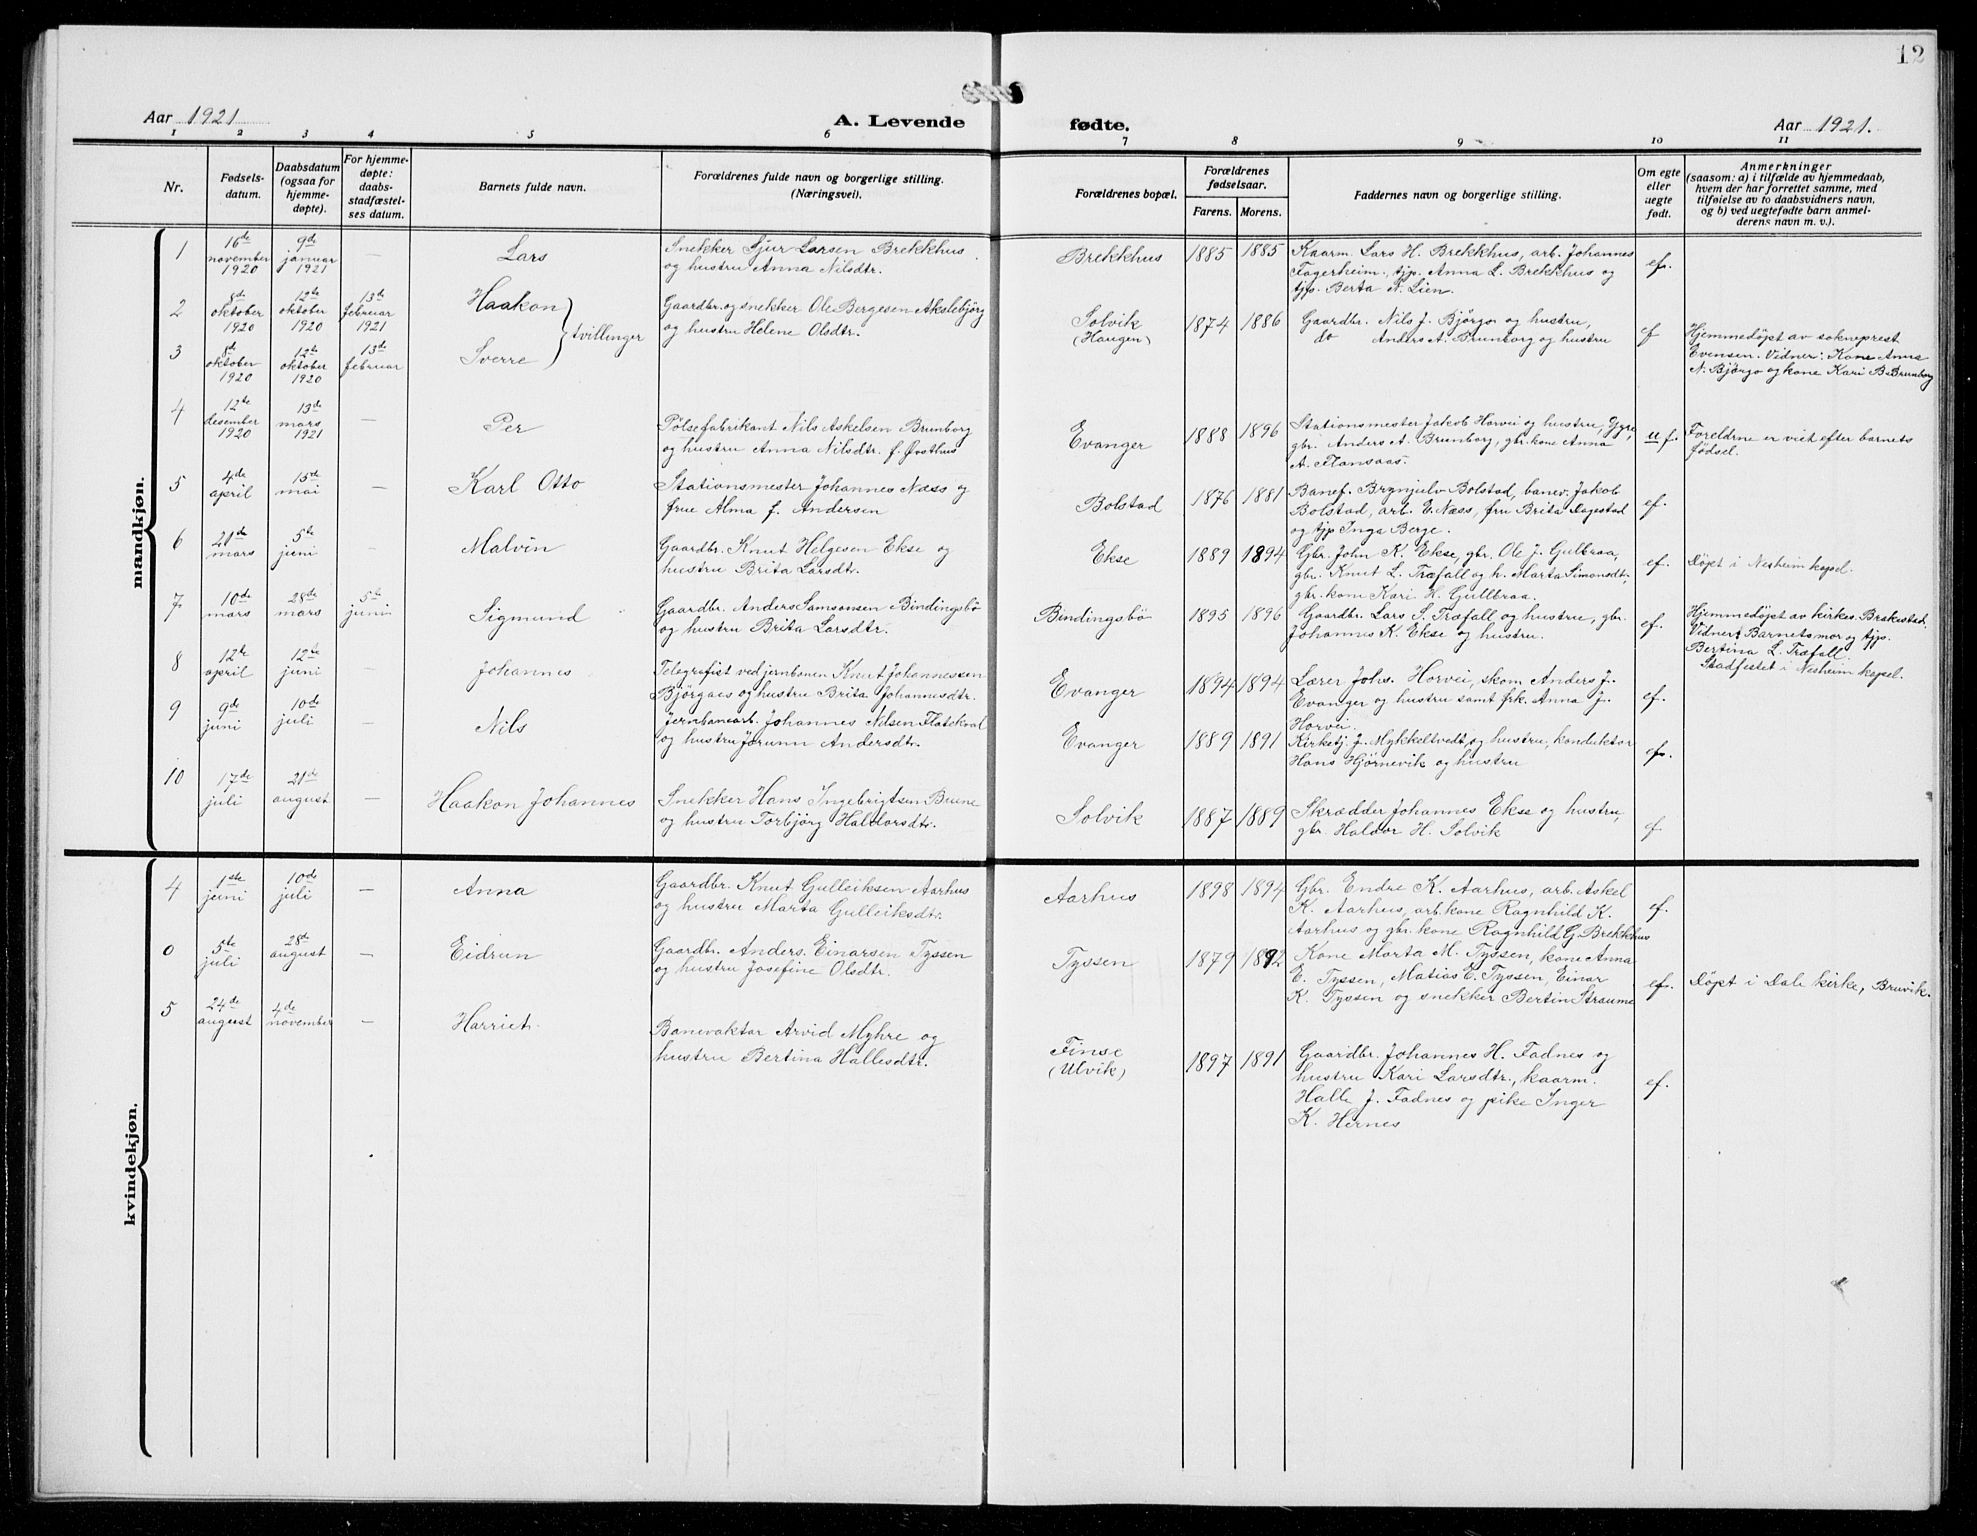 12
Aar 1921 A. Levende fødte. Aar 1921.
1 2 3 4 5 6 7 8 9 10 11
Nr. | Fødsels-datum. | Daabsdatum (ogsaa for hjemme-døpte). | For hjemme-døpte: daabs-stadfæstel-ses datum. | Barnets fulde navn. | Forældrenes fulde navn og borgerlige stilling. (Næringsvei). | Forældrenes bopæl. | Forældrenes fødselsaar. Farens. Morens. | Faddernes navn og borgerlige stilling. | Om egte eller uegte født. | Anmerkninger (saasom: a) i tilfælde av hjemmedaab, hvem der har forrettet samme, med tilføielse av to daabsvidners navn, og b) ved uegtefødte barn anmel-derens navn m. v.).
mandkjøn.
1 | 16de november 1920 | 9de januar 1921 | — | Lars | Snekker Sjur Larsen Brekkhus og hustru Anna Nilsdtr. | Brekkhus | 1885 | 1885 | Kaarm. Lars H. Brekkhus, arb. Johannes Fagerheim, tjp. Anna L. Brekkhus og tjp. Berta N. Lien. | ef.
2 | 8de oktober 1920 | 12te oktober 1920 | 13de februar 1921 | Haakon } tvillinger | Gaardbr. og snekker Ole Bergesen Akslebjørg og hustru Helene Olsdtr. | Solvik (Haugen) | 1874 | 1886 | Gaardbr. Nils J. Bjørgo og hustru, do Anders A. Brunborg og hustru | f | Hjemmedøpt av sokneprest Evensen. Vidner: Kone Anna N. Bjørgo og kone Kari B. Brunborg
3 | 8de oktober 1920 | 12te oktober 1920 | 13de februar | Sverre
4 | 12te desember 1920 | 13de mars 1921 | — | Per | Pølsefabrikant Nils Askelsen Brunborg og hustru Anna Nilsdtr. f. Øvsthus | Evanger | 1888 | 1896 | Stationsmester Jakob Horvei og hustru, Gyre, gbr. Anders A. Brunborg, gbr. kone Anna A. Flansaas. | u f. | Foreldrne er viet efter barnets fødsel.
5 | 4de april | 15de mai | — | Karl Otto | Stationsmester Johannes Næss og frue Alma f. Andersen | Bolstad | 1876 | 1881 | Banef. Brynjulv Bolstad, banev. Jakob Bolstad, arb. E. Næss, fru Brita Dagestad og tjp Inga Berge. | ef.
6 | 21de mars | 5te juni | — | Malvin | Gaardbr. Knut Helgesen Ekse og hustru Brita Larsdtr. | Ekse | 1889 | 1894 | Gbr. John K. Ekse, gbr. Ole J. Gulbraa, gbr. Knut L. Træfall og h. Marta Simonsdtr., gbr. kone Kari H. Gullbraa. | ef. | Døpt i Nesheim kapel.
7 | 10de mars | 28de mars | 5te juni | Sigmund | Gaardbr. Anders Samsonsen Bindingsbø og hustru Brita Larsdtr. | Bindingsbø | 1895 | 1896 | Gaardbr. Lars S. Træfall og hustru, gbr. Johannes K. Ekse og hustru. | ef. | Hjemmedøpt av kirkes. Brakestad. Vidner: Barnets mor og tjp. Bertina L. Træfall. Stadfestet i Nesheim kapel.
8 | 12te april | 12te juni | — | Johannes | Telegrafist ved jernbanen Knut Johannessen Bjørgaas og hustru Brita Johannesdtr. | Evanger | 1894 | 1894 | Lærer Johs. Horvei, skom Anders J. Evanger og hustru samt frk. Anna J. Horvei. | ef.
9 | 9de juni | 10de juli | — | Nils | Jernbanearb. Johannes Nilsen Flatekval og hustru Jorunn Andersdtr. | Evanger | 1889 | 1891 | Kirketj. J. Mykkeltvedt og hustru, konduktør Hans Hjørnevik og hustru | ef.
10 | 17de juli | 21de august | — | Haakon Johannes | Snekker Hans Ingebrigtsen Brune og hustru Torbjørg Haldorsdtr. | Solvik | 1887 | 1889 | Skrædder Johannes Ekse og hustru, gbr. Haldor H. Solvik | f.
kvindekjøn.
4 | 1ste juni | 10de juli | — | Anna | Gaardbr. Knut Gulleiksen Aarhus og hustru Marta Gulleiksdtr. | Aarhus | 1898 | 1894 | Gbr. Endre K. Aarhus, arb. Askel K. Aarhus, arb. kone Ragnhild K. Aarhus og gbr. kone Ragnhild G. Brekkhus | ef.
0 | 5te juli | 28de august | — | Eidrun | Gaardbr. Anders Einarsen Tyssen og hustru Josefine Olsdtr. | Tyssen | 1879 | 1892 | Kone Marta M. Tyssen, kone Anna E. Tyssen, Matias E. Tyssen, Einar K. Tyssen og snekker Bertin Straume | ef. | Døpt i Dale kirke, Bruvik.
5 | 24de august | 4de november | — | Harriet. | Banevaktar Arvid Myhre og hustru Bertina Hallesdtr. | Finse (Ulvik) | 1897 | 1891 | Gaardbr. Johannes H. Fadnes og hustru Kari Larsdtr., kaarm. Halle J. Fadnes og pike Inger K. Hernes | ef.